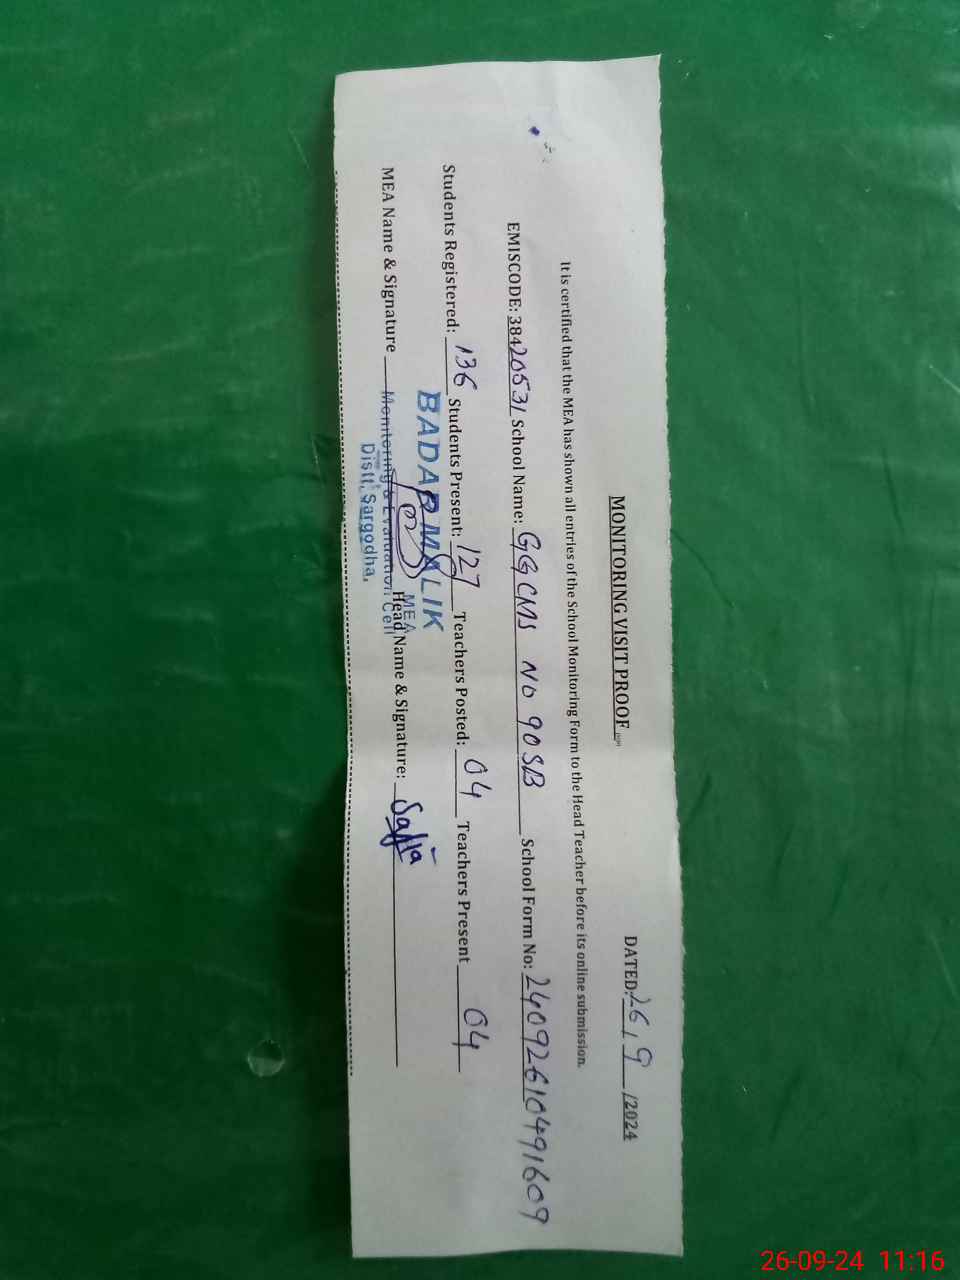 MONITORING VISIT PROOF
DATED: 26/9/2024
It is certified that the MEA has shown all entries of the School Monitoring Form to the Head Teacher before its online submission.
EMISCODE: 38420531 School Name: GGCMS NO 90SB School Form No: 24092610491609
Students Registered: 136 Students Present: 127 Teachers Posted: 04 Teachers Present 04
BADAR MALIK
MEA
MEA Name & Signature Head Name & Signature: Safia
Monitoring & Evaluation Cell
Distt, Sargodha.
26-09-24 11:16